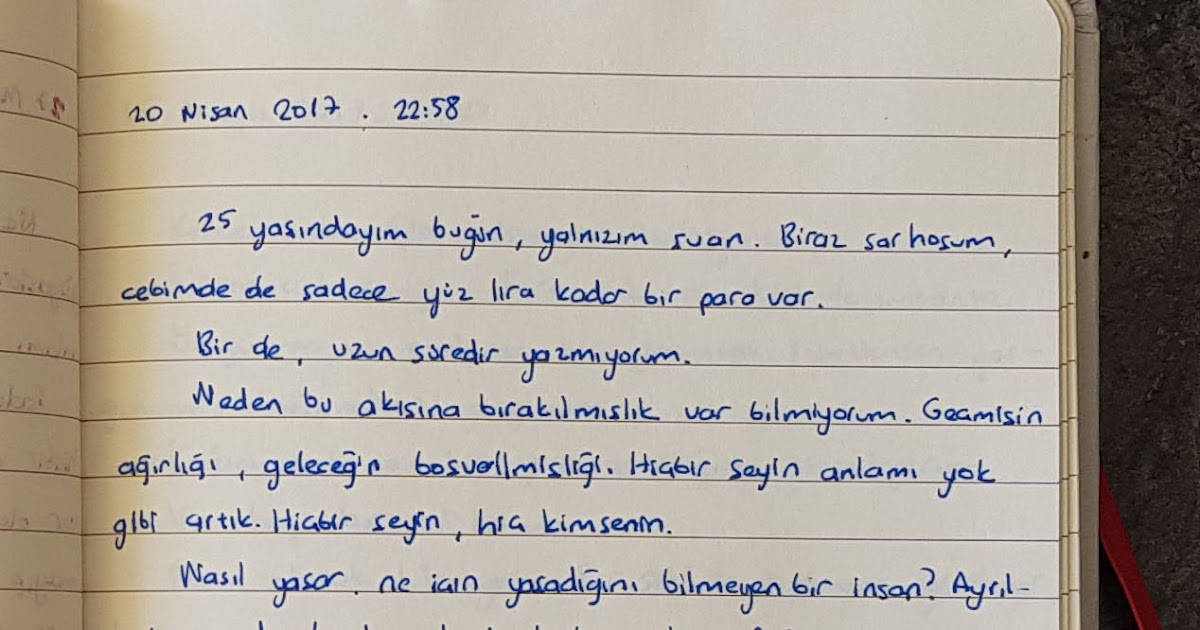 20 Nisan 2017 . 22:58
25 yasındayım bugün, yalnızım suan. Biraz sarhosum,
cebimde de sadece yüz lira kadar bir para var.
Bir de, uzun süredir yazmıyorum.
Neden bu akısına bırakılmıslık var bilmiyorum. Gecmisin
ağırlığı, geleceğin bosverilmisliği. Hicbir seyin anlamı yok
gibi artık. Hicbir seyin, hic kimsenin.
Nasıl yasar, ne icin yasadığını bilmeyen bir insan? Ayrıl-